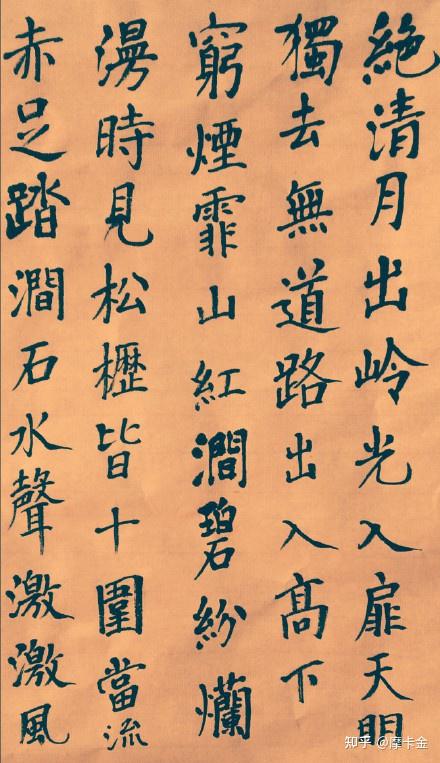 絕清月出岭光入扉天明
獨去無道路出入髙下
窮煙霏山紅澗碧紛爛
漫時見松櫪皆十圍當流
赤足踏澗石水聲激激風
知乎 @摩卡金